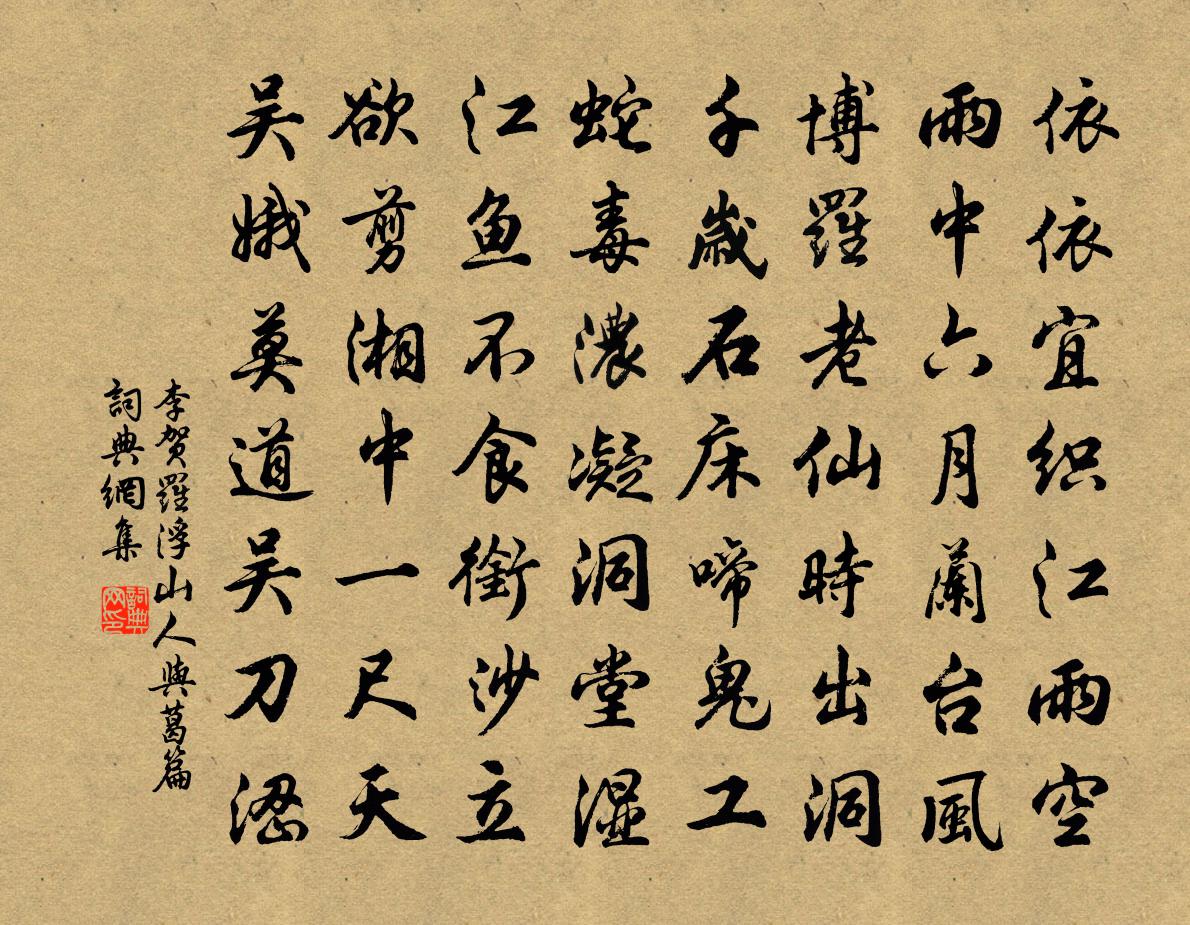 依依宜织江雨空
雨中六月蘭台風
博羅老仙時出洞
千歲石床啼鬼工
蛇毒濃凝洞堂濕
江鱼不食銜沙立
欲剪湘中一尺天
吴娥莫道吴刀澀
李贺羅浮山人與葛篇
詞典網集
詞典网印